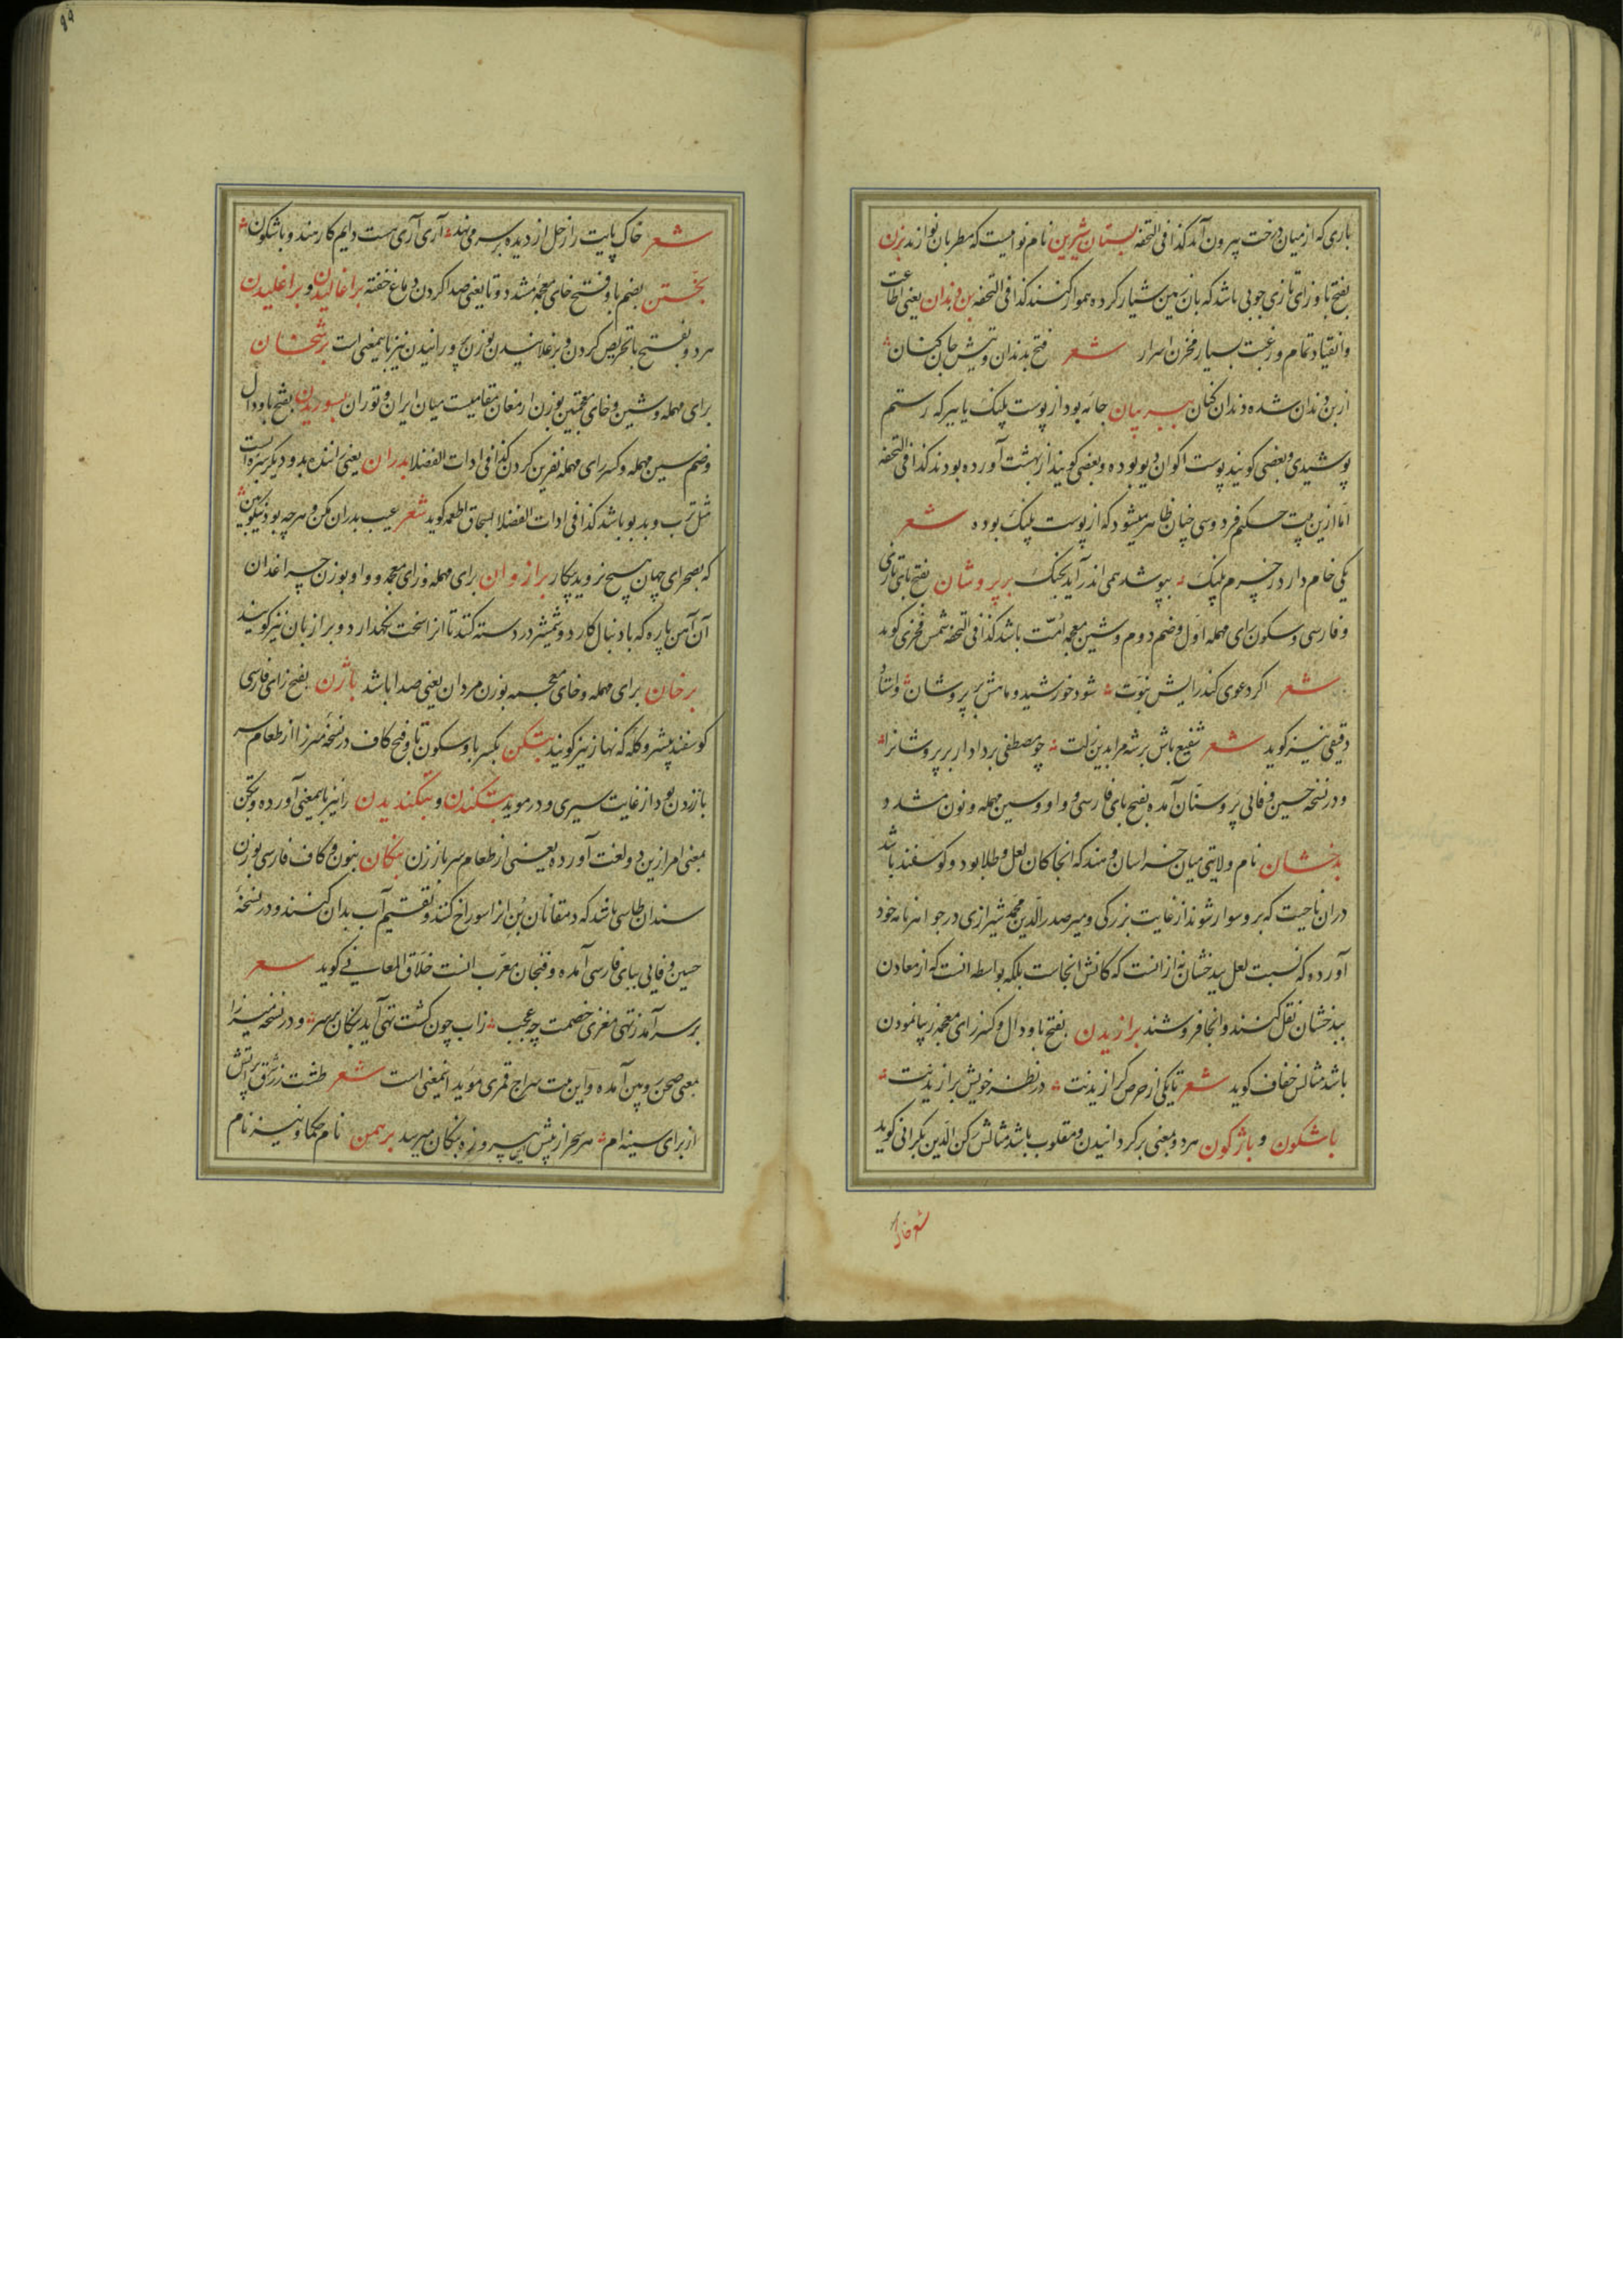 باری که از میان درخت بیرون آید کذا فی التحفه بستان شیرین نام نواییست که مطربان نوازند بزن
بفتح با و زای تازی چوبی باشد که بان زمین شیار کرده هموار کنند کذا فی التحفه بن دندان یعنی اطاعت
وانقیاد تمام و رغبت بسیار مخزن اسرار شعر فتح بدندان دیتش جان کنان
از بن دندان شده دندان کنان ببر بیان جامه بود از پوست پلنک یا ببر که رستم
پوشیدی و بعضی کویند پوست اکوان دیو بوده و بعضی کویند از بهشت آورده بودند کذا فی التحفه
اما ازین بیت حکیم فردوسی چنان ظاهر میشود که از پوست پلنک بوده شعر
یکی خام دارد ز چرم پلنک بپوشد همی اندر آید بجنک برپروشان بفتح بای تازی
و فارسی و سکون رای مهمله اول و ضم دوم و شین معجمه امت باشد کذا فی التحفه شمس فخری کوید
شعر اکر دعوی کند رایش نبوت شود خورشید و ماهش برپروشان و استاد
دقیقی نیز کوید شعر شفیع باش بر شه مرا بدین زلت چو مصطفی بر دادار برپروشانرا
و در نسخه حسین وفائی پروستان آمده بفتح بای فارسی و واو و سین مهمله و نون مشدد و
بدخشان نام ولایتی میان خراسان و هند که انجا کان لعل و طلا بود و کوسفند باشد
دران ناحیت که برو سوار شوند از غایت بزرکی و میر صدر الدین محمد شیرازی در جواهرنامه خود
آورده که نسبت لعل ببدخشان نه از انست که کانش انجاست بلکه بواسطه انست که از معادن
ببدخشان نقل کنند و انجا فروشند برازیدن بفتح با و دال و کسر زای معجمه زیبا نمودن
باشد مثالش خفاف کوید شعر تا یکی از حرص کرازیدنت در نظر خویش برازیدنت
باشکون و باژکون هر دو بمعنی برکردانیدن و مقلوب باشد مثالش رکن الدین بکرانی کوید
شعر خاک
شعر خاک پایت را زحل از دیده بر سر می نهد آری آری هست دایم کارمند و باشکون
بخستن بضم با و فتح خای معجمه مشدد و تا یعنی صدا کردن دماغ خفته براغالیدن و براغلیدن
هر دو بفتح با تحریص کردن و برغلانیدن بوزن بچورانیدن نیز باینمعنی است برشخان
برای مهمله و شین و خای معجمتین بوزن ارمغان مقامیست میان ایران و توران بسوریدن بفتح با و دال
و ضم سین مهمله و کسر رای مهمله نفرین کردن کذا فی ادات الفضلا بدران یعنی رانندۀ بد و دیکر سبزه ایست
مثل ترب و بدبو باشد کذا فی ادات الفضلا بسحاق اطعمه کوید شعر عیب بدران مکن و هر چه بود نیکو بین
که بصحرای جهان هیچ نروید بیکار برازوان برای مهمله و زای معجمه و واو بوزن چراغدان
آن آهن پاره که با دنبال کارد و شمشیر در دسته کنند تا انرا سخت نکهدارد و برازبان نیز کویند
برخان برای مهمله و خای معجمه بوزن مردان یعنی صدا باشد باژن بفتح زای فارسی
کوسفند پیشرو کله که نهاز نیز کویند بتکن بکسر با و سکون تا و فتح کاف در نسخه میرزا از طعام سر
باز زدن بود از غایت سیری و در موید بتکندن و بتکندیدن را نیز باینمعنی آورده و بتکن
بمعنی امر ازین دو لغت آورده یعنی از طعام سر باز زن بنکان بنون و کاف فارسی بوزن
سندان طاسی باشد که دهقانان بن انرا سوراخ کنند و تقسیم آب بدان کنند و در نسخه
حسین وفایی ببای فارسی آمده و فنجان معرب انست خلاق المعانی کوید شعر
برسر آمد ز تهی مغزی خصمت چه عجب زاب چون کشت تهی آید بنکان بر سر و در نسخه میرزا
بمعنی صحن روپین آمده و این بیت سراج قمری موید اینمعنی است شعر طشت زر شرق پر اتش
از برای سینه ام هر سحر از پیش پیروزه بنکان میرسد برهمن نام حکما و نیز نام